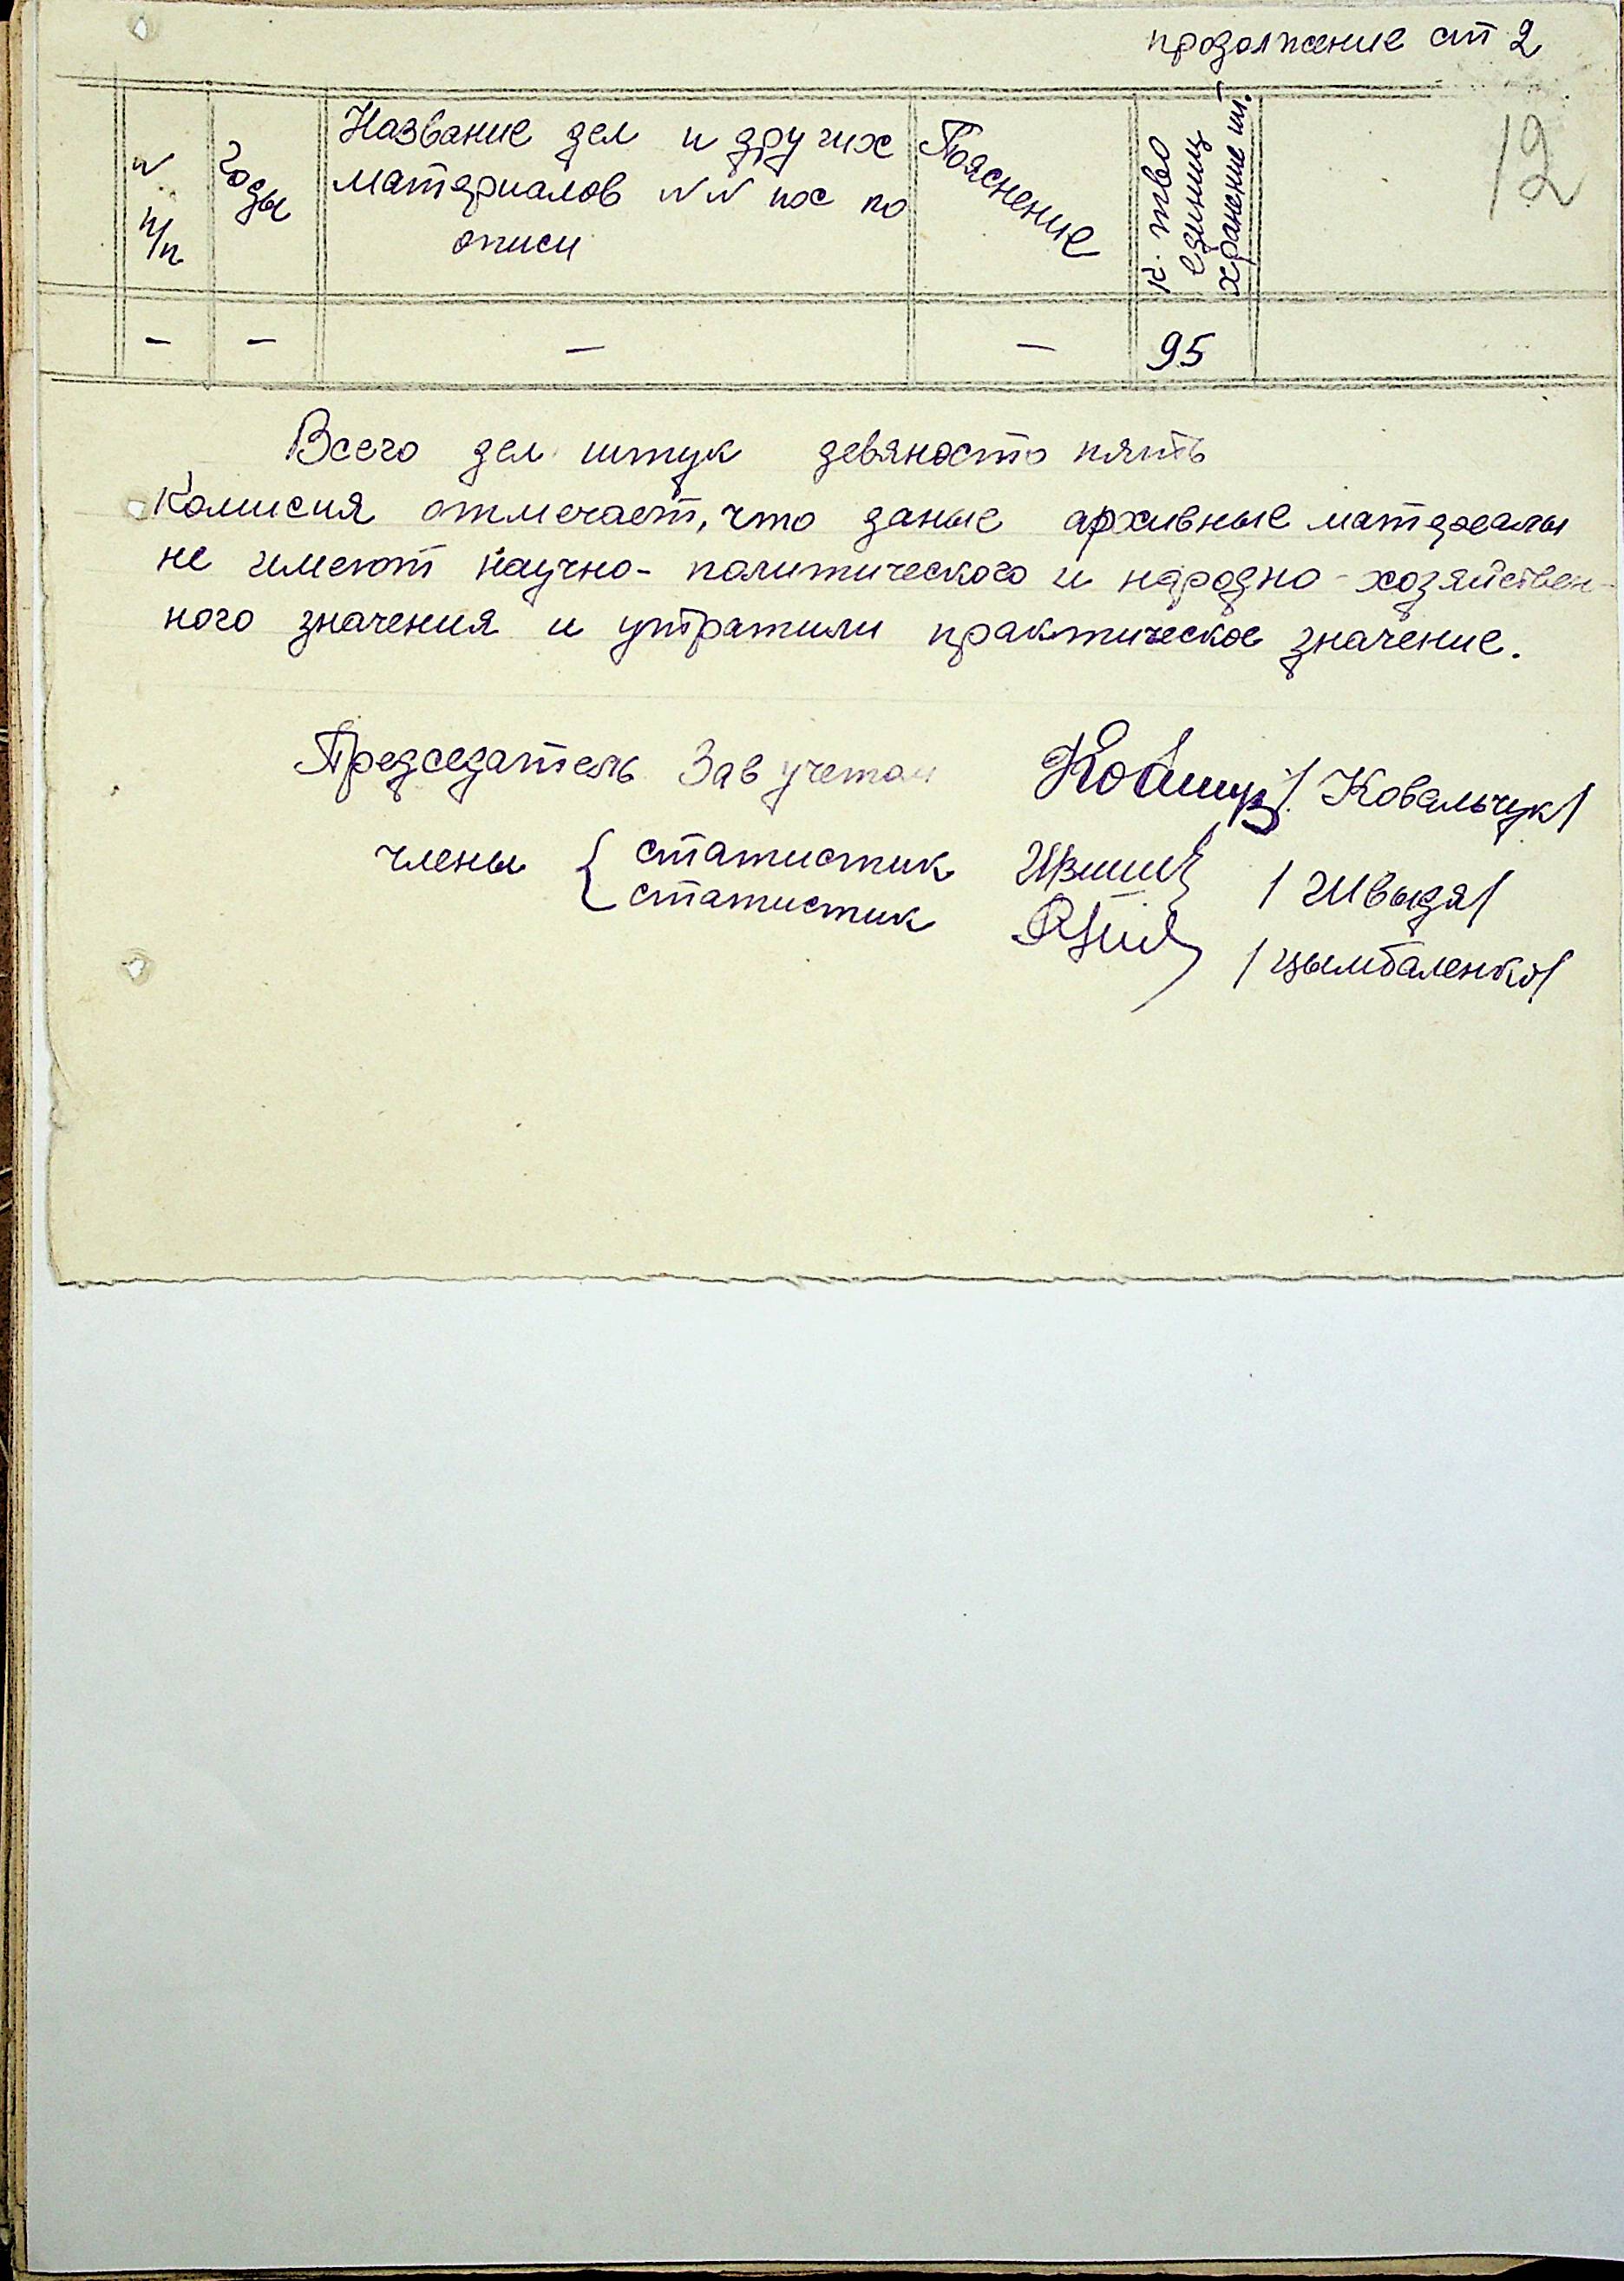 продолжение ст 2
12
N п/п
Годы
Название дел и других
материалов NN пос по
описи
Пояснение
К. тво
единиц
хранение шт.
- - - - 95
Всего дел штук девяносто пять
Комисия отмечает, что даные архивные матереалы
не имеют научно- политического и народно-хозяйствен-
ного значения и утратили практическое значение.
Председатель Зав учетом /Ковальчук/
члены { статистик /Швыдя/
статистик /Цымбаленко/